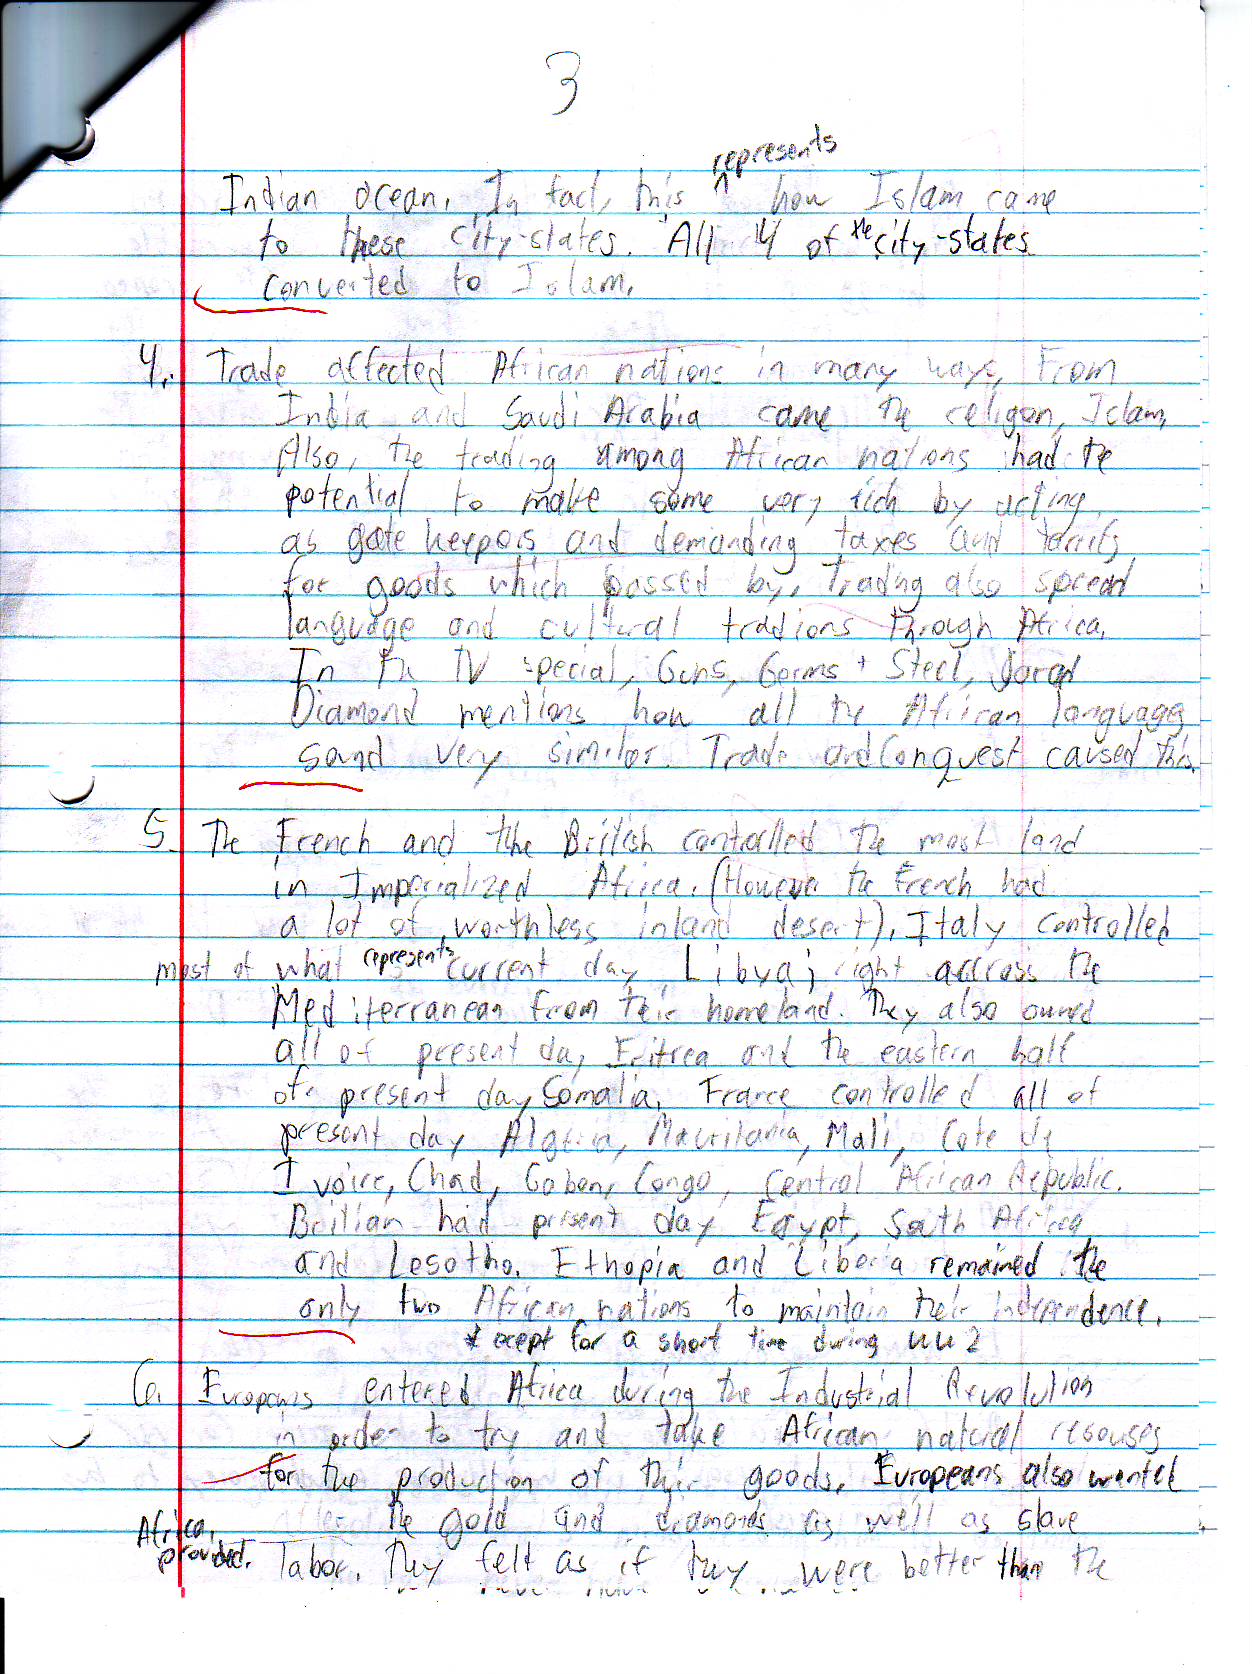 3
represents
Indian ocean. In fact, this ^ how Islam came
to these city-states. All 4 of the city-states
converted to Islam.
4. Trade affected African nations in many ways. From
India and Saudi Arabia came the religon, Islam.
Also, the trading among African nations had the
potential to make some very rich by acting
as gate keepers and demanding taxes and tarrifs
for goods which passed by. Trading also spread
language and cultural tradions through Africa.
In the TV special, Guns, Germs + Steel, Jared
Diamond mentions how all the African languages
sound very similar. Trade and Conquest caused this.
5. The French and the British controlled the most land
in Imperialized Africa. (However the French had
a lot of worthless inland desert). Italy controlled
most of what represents current day Libya; right accross the
Mediterranean from their homeland. They also owned
all of present day Eritrea and the eastern half
of present day Somalia. France controlled all of
present day Algeria, Mauritania, Mali, Cote de
Ivoire, Chad, Gabon, Congo, Central African Republic.
Britian had present day Egypt, South Africa
and Lesotho. Ethopia and Liberia remained the
only two African nations to maintain their independence.
* ecept for a short time during WW2
6. Europeans entered Africa during the Industrial Revolution
in order to try and take African natural resouses
for the production of their goods. Europeans also wanted
the gold and diamonds as well as slave
Africa provided.
labor. They felt as if they were better than the